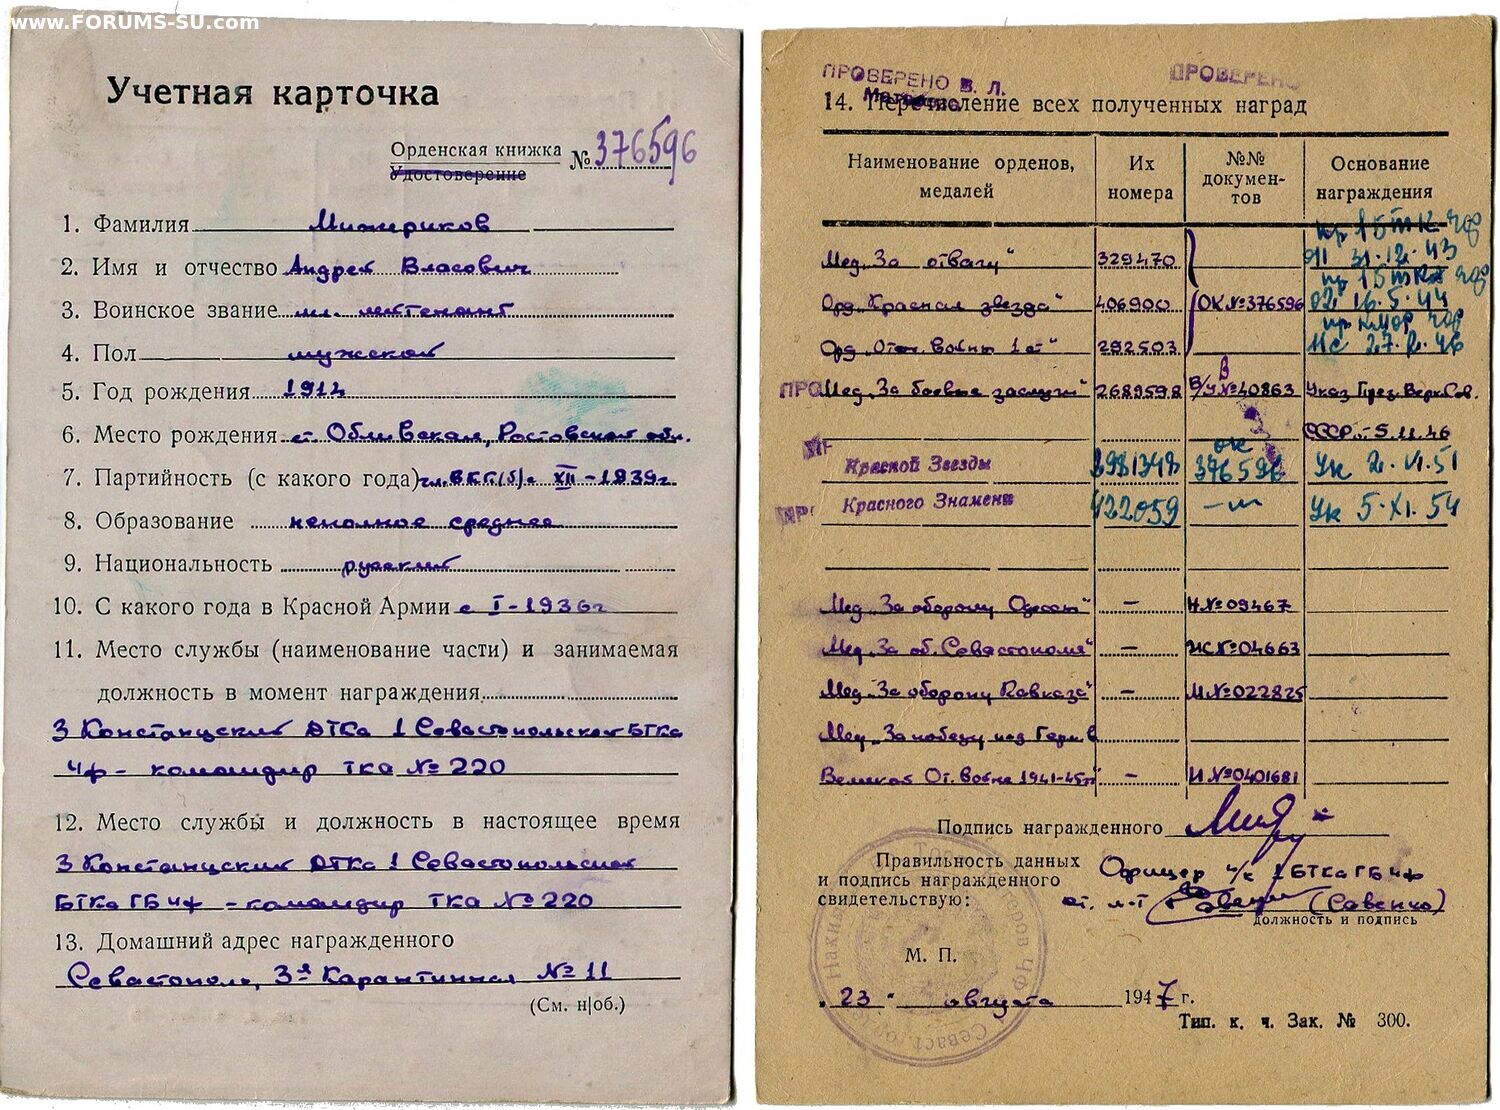 www.FORUMS-SU.com
Учетная карточка
Орденская книжка № 376596
Удостоверение
1. Фамилия Мижериков
2. Имя и отчество Андрей Власович
3. Воинское звание мл. лейтенант
4. Пол мужской
5. Год рождения 1914
6. Место рождения ст. Обливская, Ростовской обл.
7. Партийность (с какого года) чл. ВКП(б) с XII-1939г.
8. Образование неполное среднее
9. Национальность русский
10. С какого года в Красной Армии с I-1936г
11. Место службы (наименование части) и занимаемая
должность в момент награждения
3 Констанцский ДТКа 1 Севастопольской БТКа
ЧФ - командир ТКА № 220
12. Место службы и должность в настоящее время
3 Констанцский ДТКа 1 Севастопольской
БТКа ГБ ЧФ - командир ТКА № 220
13. Домашний адрес награжденного
Севастополь, 3я Карантинная № 11
(См. н|об.)
ПРОВЕРЕНО В. Л. ПРОВЕРЕНО
14. Перечисление всех полученных наград
Наименование орденов, медалей Их номера №№ документов Основание награждения
Мед. „За отвагу" 329470 31.12.43
Орд „Красная звезда" 406900 ОК №376596 16.5.44
Орд „Отеч. Войны 1 ст" 292503
Мед. „За боевые заслуги" 2689598 В/У №40863 Указ През. Верх. Сов.
СССР от 5.11.46
Красной Звезды ок 376596 Ук 2.VI.51
Красного Знамени 422059 —„— Ук 5.XI.54
Мед. „За оборону Одессы" — Н.№09467
Мед. „За об. Севастополя" — НС№04663
Мед. „За оборону Кавказа" — М№022825
Мед. „За победу над Герм. в
Великой От. войне 1941-45гг" — И №0401681
Подпись награжденного
Правильность данных
и подпись награжденного
свидетельствую:
Офицер ч/с 1 БТКа ГБ ЧФ
ст. л-т (Савенко)
Должность и подпись
М. П.
„23" августа 1947 г.
Тип. к. ч. Зак. № 300.